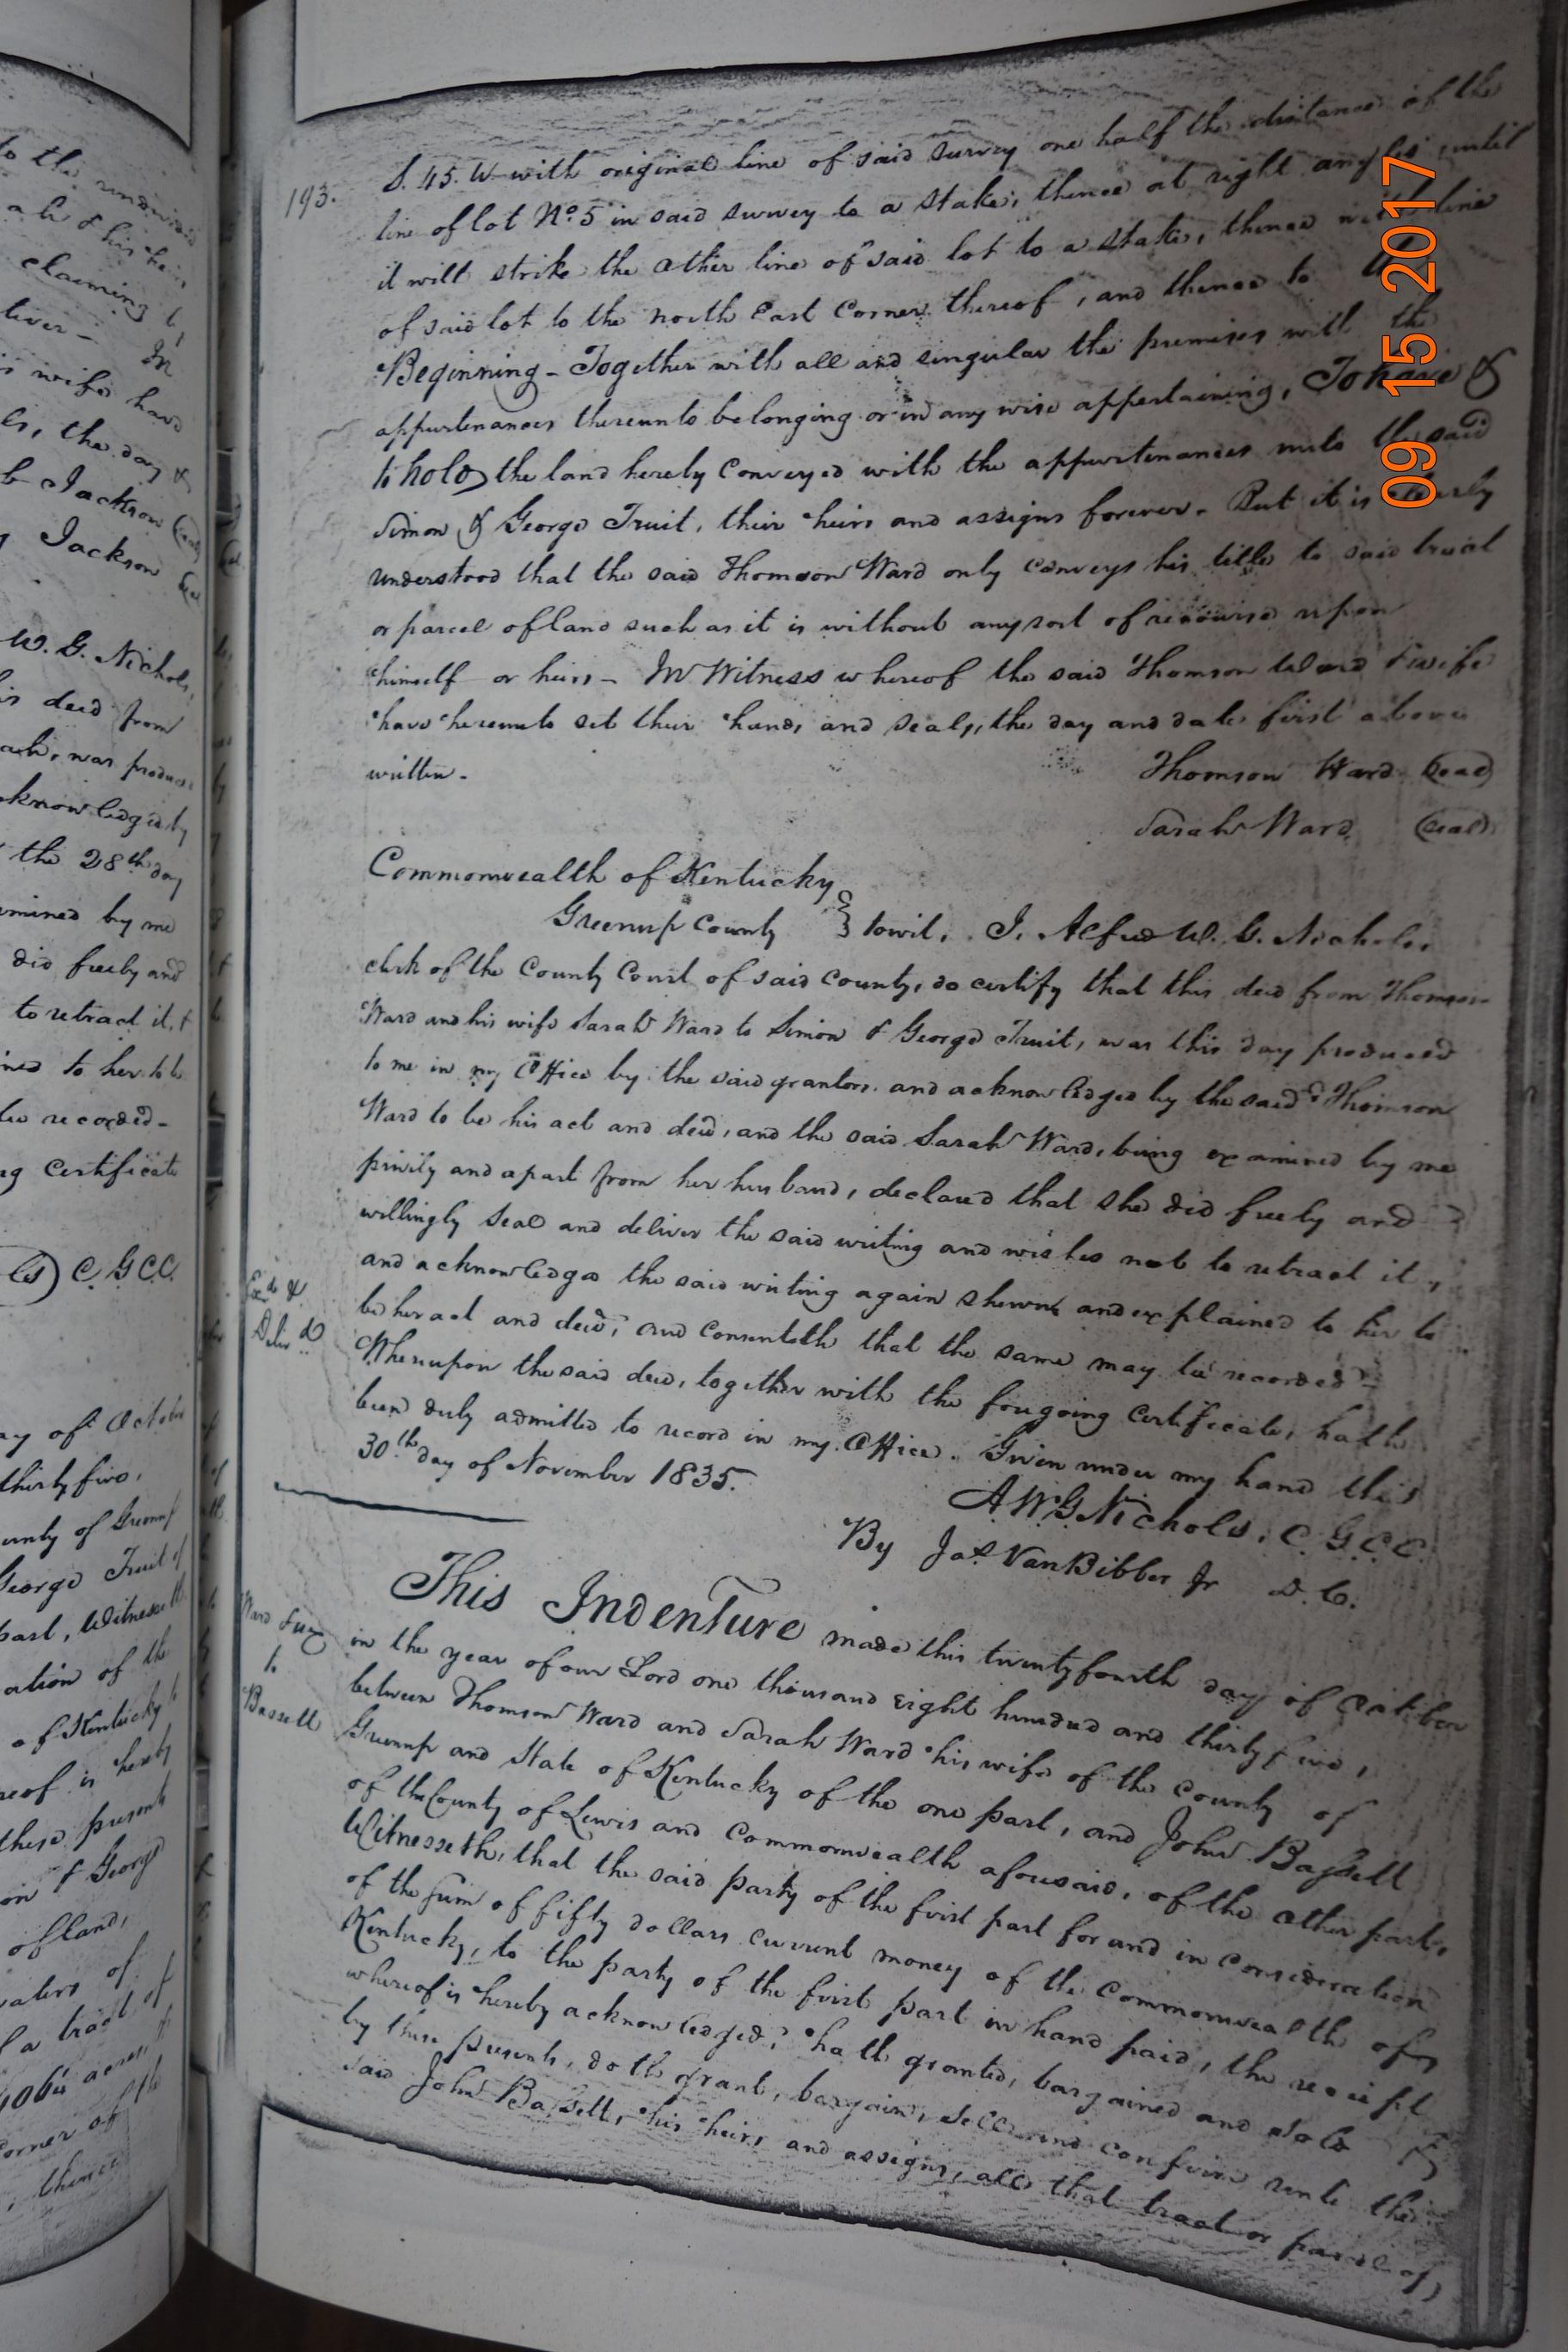 193.
S. 45. W with original line of said survey one half the distance of the
line of lot No. 5 in said survey to a stake, thence at right angles until
it will strike the other line of said lot to a stake, thence with line
of said lot to the north East Corner thereof, and thence to
Beginning - Together with all and singular the premises with the
appurtenances thereunto belonging or in any wise appertaining, To have &
to hold the land hereby Conveyed with the appurtenances unto the said
Simon & George Truit, their heirs and assigns forever. But it is
understood that the said Thomson Ward only conveys his title to said tract
or parcel of land such as it is without any sort of recourse upon
himself or heirs - In Witness whereof the said Thomson Ward & wife
have hereunto set their hands and seals, the day and date first above
written.
Thomson Ward (seal)
Sarah Ward (seal)
Commonwealth of Kentucky
Greenup County } towit, I, Alfred W. G. Nichols,
clerk of the County Court of said County, do certify that this deed from Thomson
Ward and his wife Sarah Ward to Simon & George Truit, was this day produced
to me in my Office by the said grantors and acknowledged by the said Thomson
Ward to be his act and deed, and the said Sarah Ward, being examined by me
privily and apart from her husband, declared that she did freely and
willingly seal and deliver the said writing and wishes not to retract it,
and acknowledges the said writing again shewn and explained to her to
be her act and deed, and consenteth that the same may be recorded -
Whereupon the said deed, together with the foregoing Certificate, hath
been duly admitted to record in my Office. Given under my hand this
30th day of November 1835.
Exd. &
Delivd
A W G Nichols, C. G. C. C.
By Jas. VanBibber Jr D. C.
This Indenture made this twenty fourth day of October
in the year of our Lord one thousand Eight hundred and thirty five,
between Thomson Ward and Sarah Ward his wife of the County of
Greenup and State of Kentucky of the one part, and John Bassett
of the County of Lewis and Commonwealth aforesaid, of the other part,
Witnesseth, that the said party of the first part for and in consideration
of the sum of fifty dollars current money of the Commonwealth of
Kentucky, to the party of the first part in hand paid, the receipt
whereof is hereby acknowledged, hath granted, bargained and sold &
by these presents, doth grant, bargain, sell and confirm unto the
said John Bassett, his heirs and assigns, all that tract or parcel of
Ward & ux
to
Bassett
to the
claiming
wife have
the day &
Jackson
Jackson
W. G. Nichols,
deed from
was produc
acknowledged by
the 28th day
examined by me
did freely and
to retract it, &
to her to be
be recorded -
Certificate
C. G C C.
day of October
thirty five,
County of Greenup
George Truit of
part, Witnesseth
ation of the
of Kentucky
reof is hereby
these presents
on & George
of land,
waters of
a tract of
acres,
Corner of
thence
09 15 2017